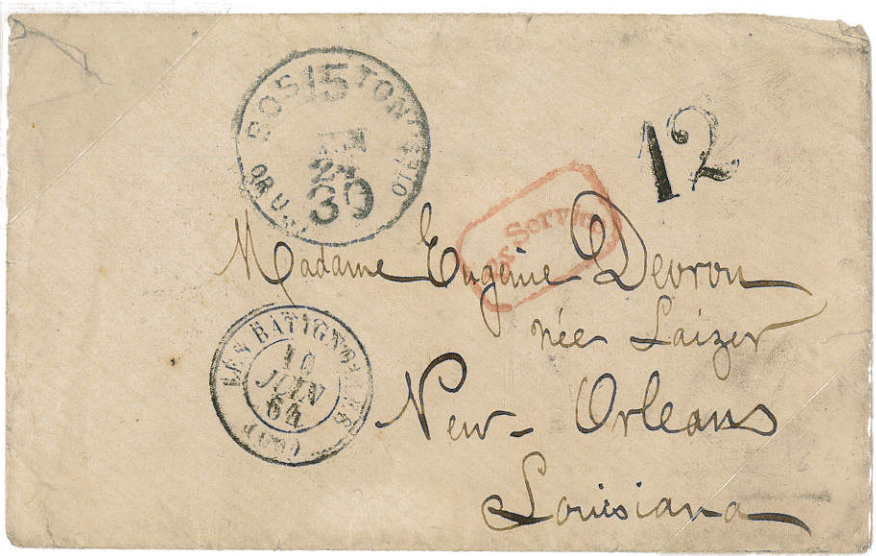 BOSTON
15
30
12
Service
Madame Eugène Devron
née Laizer
New-Orleans
Louisiana
LES BATIGNOLLES
10
JUIN
64